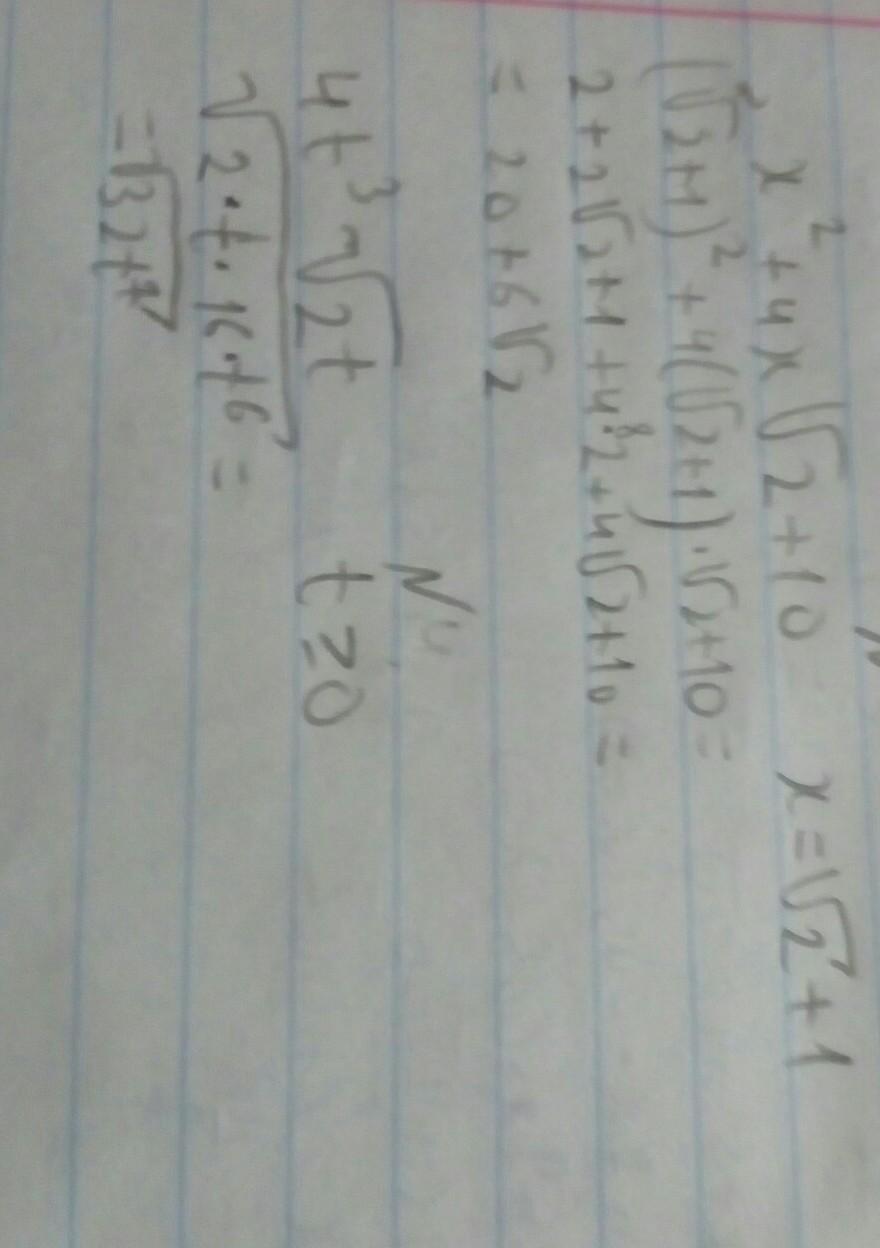 x² + 4x√2 + 10 x = √2 + 1
(√2+1)² + 4(√2+1)·√2+10 =
2 + 2√2+1 + 4·2 + 4√2+10 =
= 20 + 6√2
4t³√2t t ≥ 0
√2·t·16·t⁶ =
= √32t⁷